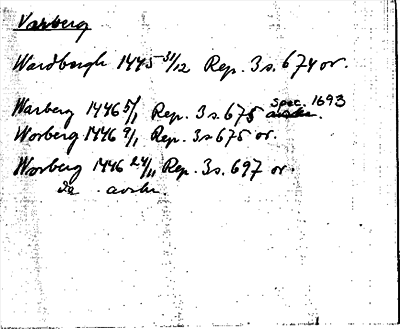 Varberg
Wardbergh 1445 31/12 Rep. 3 s. 674 or.
Warberg 1446 5/1 Rep. 3 s. 675 avskr. Spec. 1693
Worberg 1446 9/1 Rep. 3 s 675 or.
Worberg 1446 24/11 Rep. 3 s. 697 or.
Do avskr.